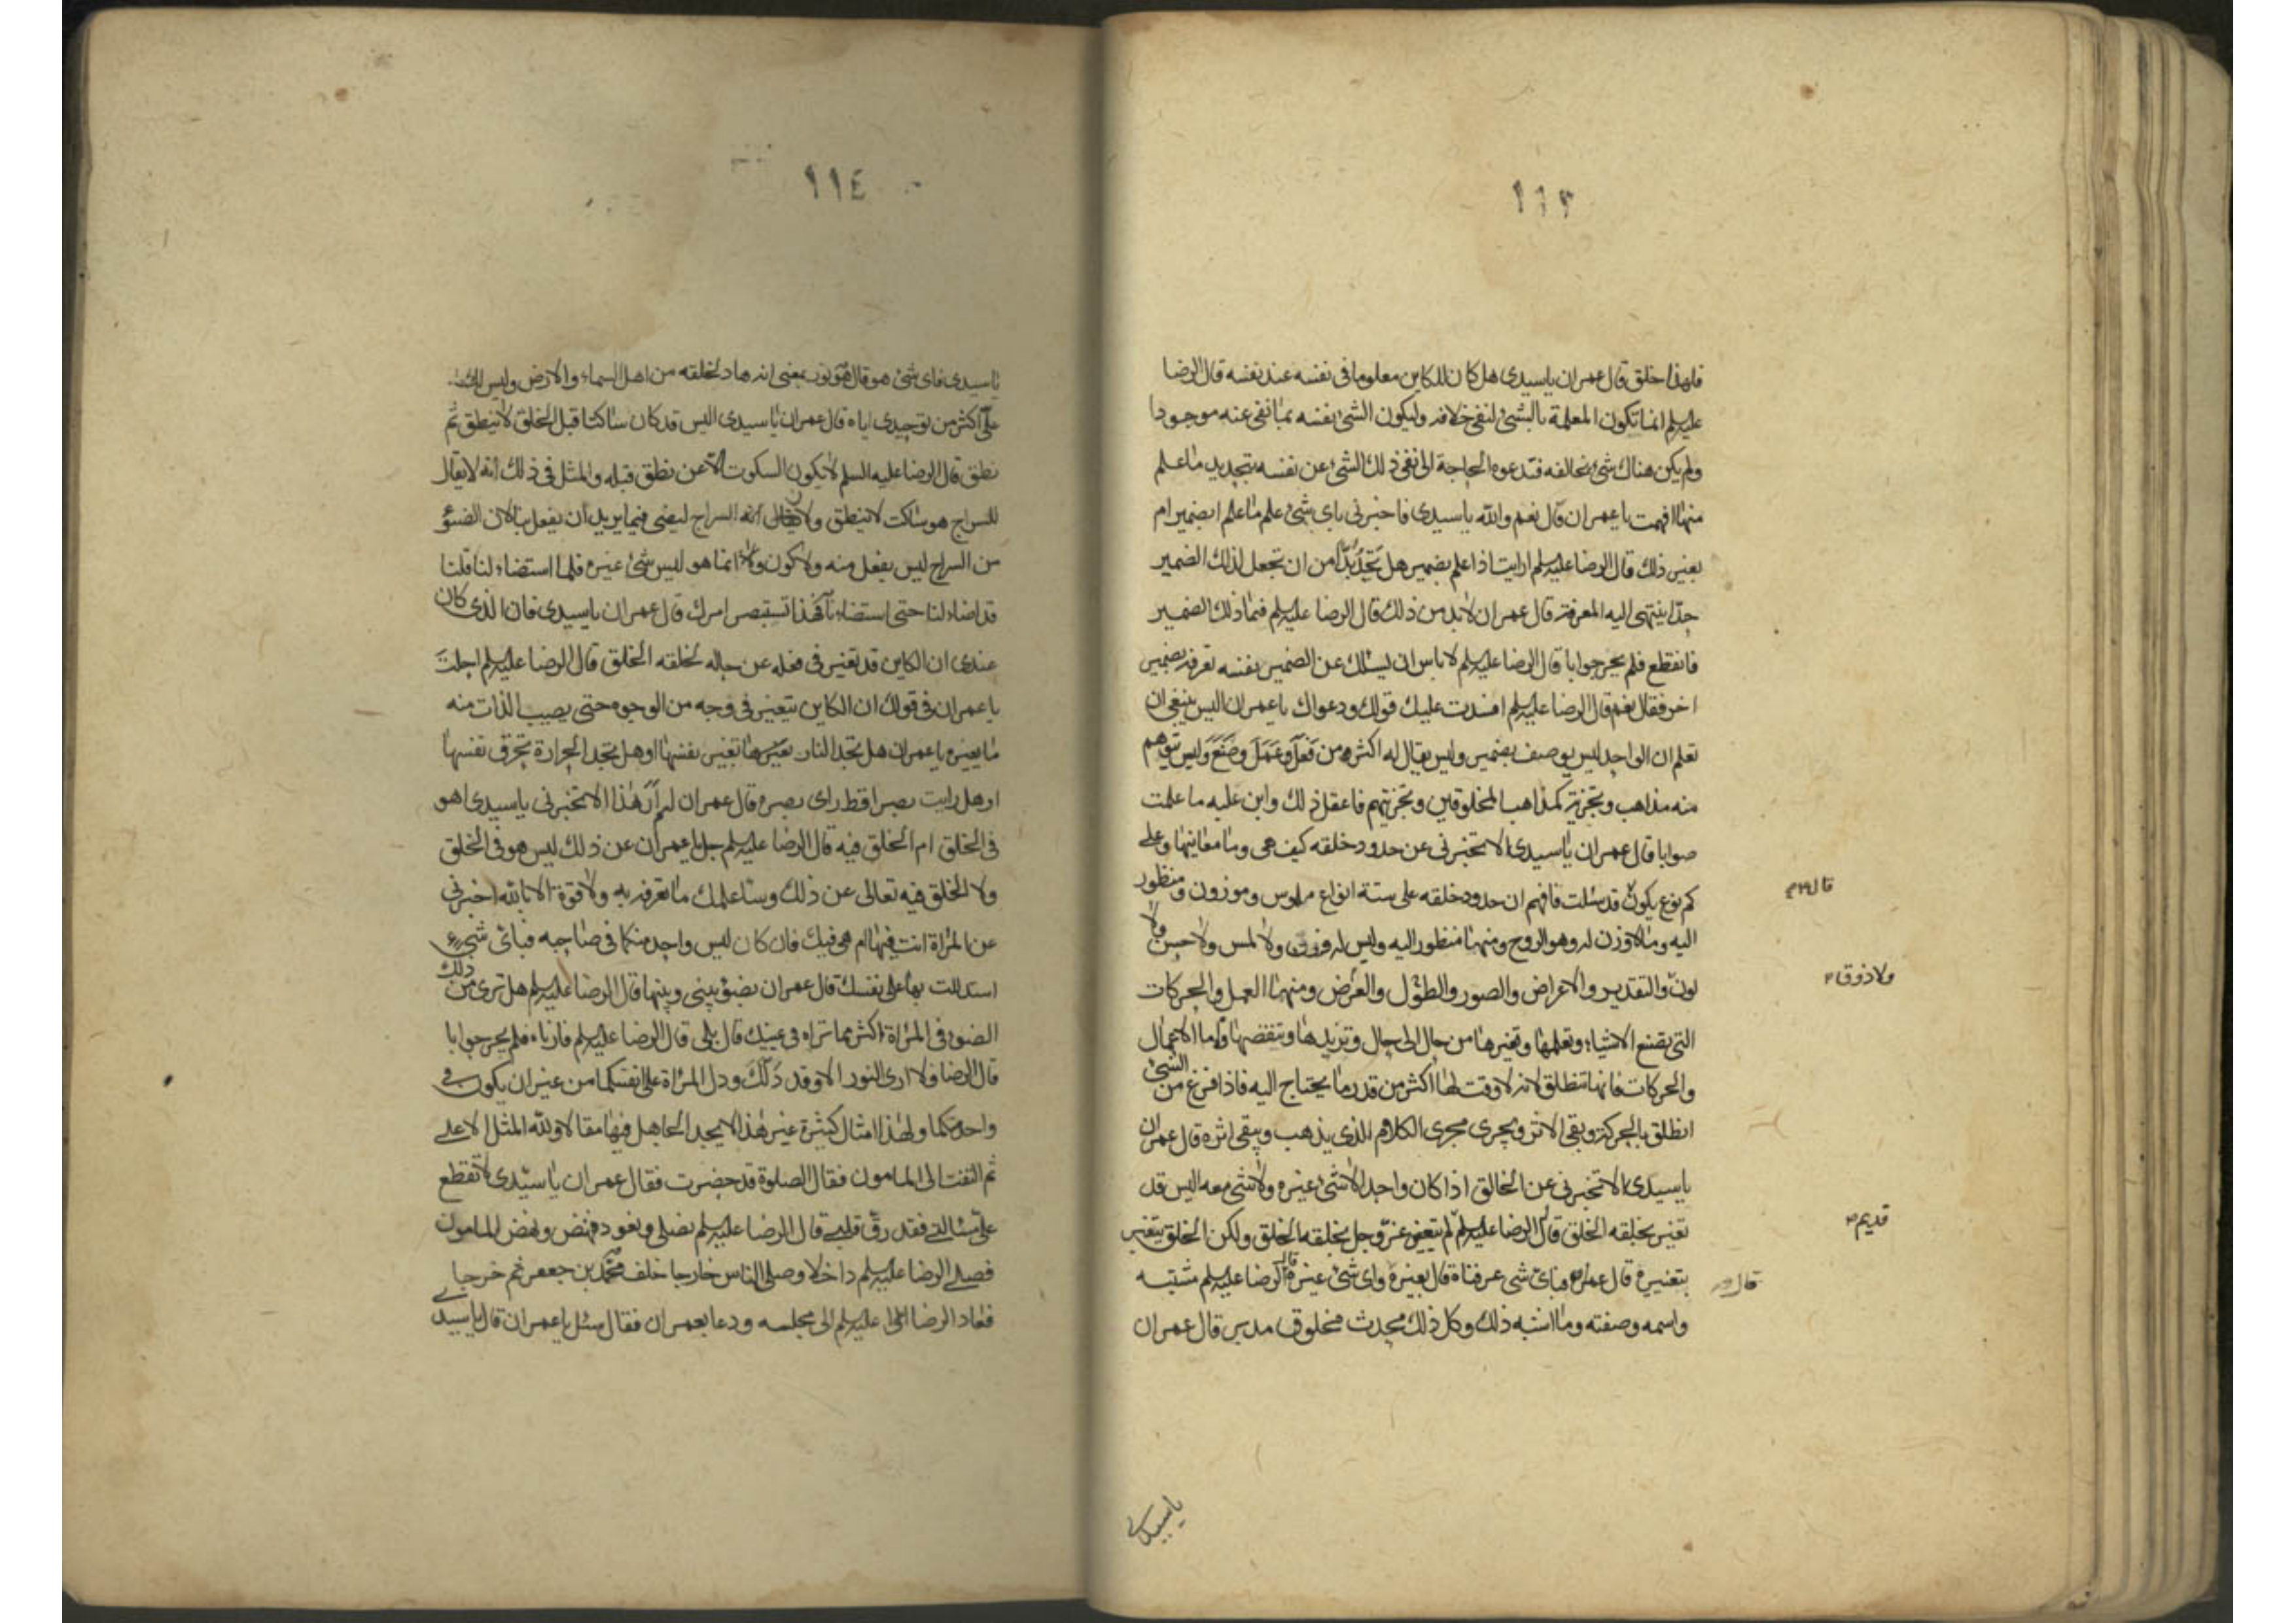 ١١٣
فلهذا خلق قال عمران ياسيدى هل كان الكاين معلوما فى نفسه عند نفسه قال الرضا
عليه السلم انما تكون المعلمة بالشئ لنفى خلافه وليكون الشئ نفسه بما نفى عنه موجودا
ولم يكن هناك شئ يخالفه فتدعوه الحاجة الى نفى ذلك الشئ عن نفسه بتجديد ما علم
منها افهمت يا عمران قال نعم والله ياسيدى فاخبرنى باى شئ علم ما علم ابضمير ام
بغير ذلك قال الرضا عليه السلم ارايت اذا علم بضمير هل تجد بدا من ان تجعل لذلك الضمير
حدا ينتهى اليه المعرفة قال عمران لابد من ذلك قال الرضا عليه السلم فما ذلك الضمير
فانقطع فلم يحر جوابا قال الرضا عليه السلم لا باس ان يسئلك عن الضمير نفسه تعرفه بضمير
اخر فقال نعم قال الرضا عليه السلم افسدت عليك قولك ودعواك يا عمران اليس ينبغى ان
تعلم ان الواحد ليس يوصف بضمير وليس يقال له اكثر من فعل وعمل وصنع وليس يتوهم
منه مذاهب وتجزية كمذاهب المخلوقين وتجزيتهم فاعقل ذلك وابن عليه ما علمت
صوابا قال عمران ياسيدى الا تخبرنى عن حدود خلقه كيف هى وما معانيها وعلى
كم نوع يكون قد سئلت فافهم ان حدود خلقه على ستة انواع ملموس وموزون ومنظور
قال ٢م
اليه وما لا وزن له وهو الروح ومنها منظور اليه وليس له وزن ولا لمس ولا حس ولا
لون والتقدير والاعراض والصور والطول والعرض ومنها العمل والحركات
ولا ذوق ٢
التى تصنع الاشياء وتعلمها وتغيرها من حال الى حال وتزيدها وتنقصها واما الاعمال
والحركات فانها تنطلق لانه لا وقت لها اكثر من قدر ما يحتاج اليه فاذا فرغ من الشئ
انطلق بالحركة وبقى الاثر ويجرى مجرى الكلام الذى يذهب ويبقى اثره قال عمران
ياسيدى الا تخبرنى عن الخالق اذا كان واحدا لا شئ غيره ولا شئ معه اليس قد
تغير بخلقه الخلق قال الرضا عليه السلم لم يتغير عز وجل بخلقه الخلق ولكن الخلق يتغير
قديم
بتغييره قال عمران فباى شى عرفناه قال بغيره واى شئ غيره قال الرضا عليه السلم مشيته
قال
واسمه وصفته وما اشبه ذلك وكل ذلك محدث مخلوق مدبر قال عمران
ياسيدى
١١٤
ياسيدى فاى شئ هو قال هو نور بمعنى انه هاد لخلقه من اهل السماء والارض وليس لك
على اكثر من توحيدى اياه قال عمران ياسيدى اليس قد كان ساكتا قبل الخلق لا ينطق ثم
نطق قال الرضا عليه السلم لا يكون السكوت الا عن نطق قبله والمثل فى ذلك انه لا يقال
للسراج هو ساكت لا ينطق ولا يقال ان السراج ليضى فيما يريد ان يفعل بنا لان الضوء
من السراج ليس بفعل منه ولا كون وانما هو ليس شئ غيره فلما استضاء لنا قلنا
قد اضاء لنا حتى استضاءنا فبهذا تستبصر امرك قال عمران ياسيدى فان الذى كان
عندى ان الكاين قد تغير فى فعله عن حاله بخلقه الخلق قال الرضا عليه السلم احلت
يا عمران فى قولك ان الكاين يتغير فى وجه من الوجوه حتى يصيب الذات منه
ما يغيره يا عمران هل تجد النار تغيرها تغير نفسها او هل تجد الحرارة تحرق نفسها
او هل رايت بصيرا قط راى بصره قال عمران لم ار هذا الا تخبرنى ياسيدى اهو
فى الخلق ام الخلق فيه قال الرضا عليه السلم جل يا عمران عن ذلك ليس هو فى الخلق
ولا الخلق فيه تعالى عن ذلك وساعلمك ما تعرفه به ولا قوة الا بالله اخبرنى
عن المراة انت فيها ام هى فيك فان كان ليس واحد منكما فى صاحبه فباى شئ
استدللت بها على نفسك قال عمران بضوء بينى وبينها قال الرضا عليه السلم هل ترى من ذلك
الضوء فى المراة اكثر مما تراه فى عينك قال بلى قال الرضا عليه السلم فارناه فلم يحر جوابا
قال الرضا فلا ارى النور الا وقد دلك ودل المراة على انفسكما من غير ان يكون فى
واحد منكما ولهذا امثال كثيرة غير هذا لا يجد الجاهل فيها مقالا ولله المثل الاعلى
ثم التفت الى المامون فقال الصلوة قد حضرت فقال عمران ياسيدى لا تقطع
على مسئالتى فقد رق قلبى قال الرضا عليه السلم نصلى ونعود فنهض ونهض المامون
فصلى الرضا عليه السلم داخلا وصلى الناس خارجا خلف محمد بن جعفر ثم خرجا
فعاد الرضا عليه السلم الى مجلسه ودعا بعمران فقال سئل يا عمران قال ياسيدى